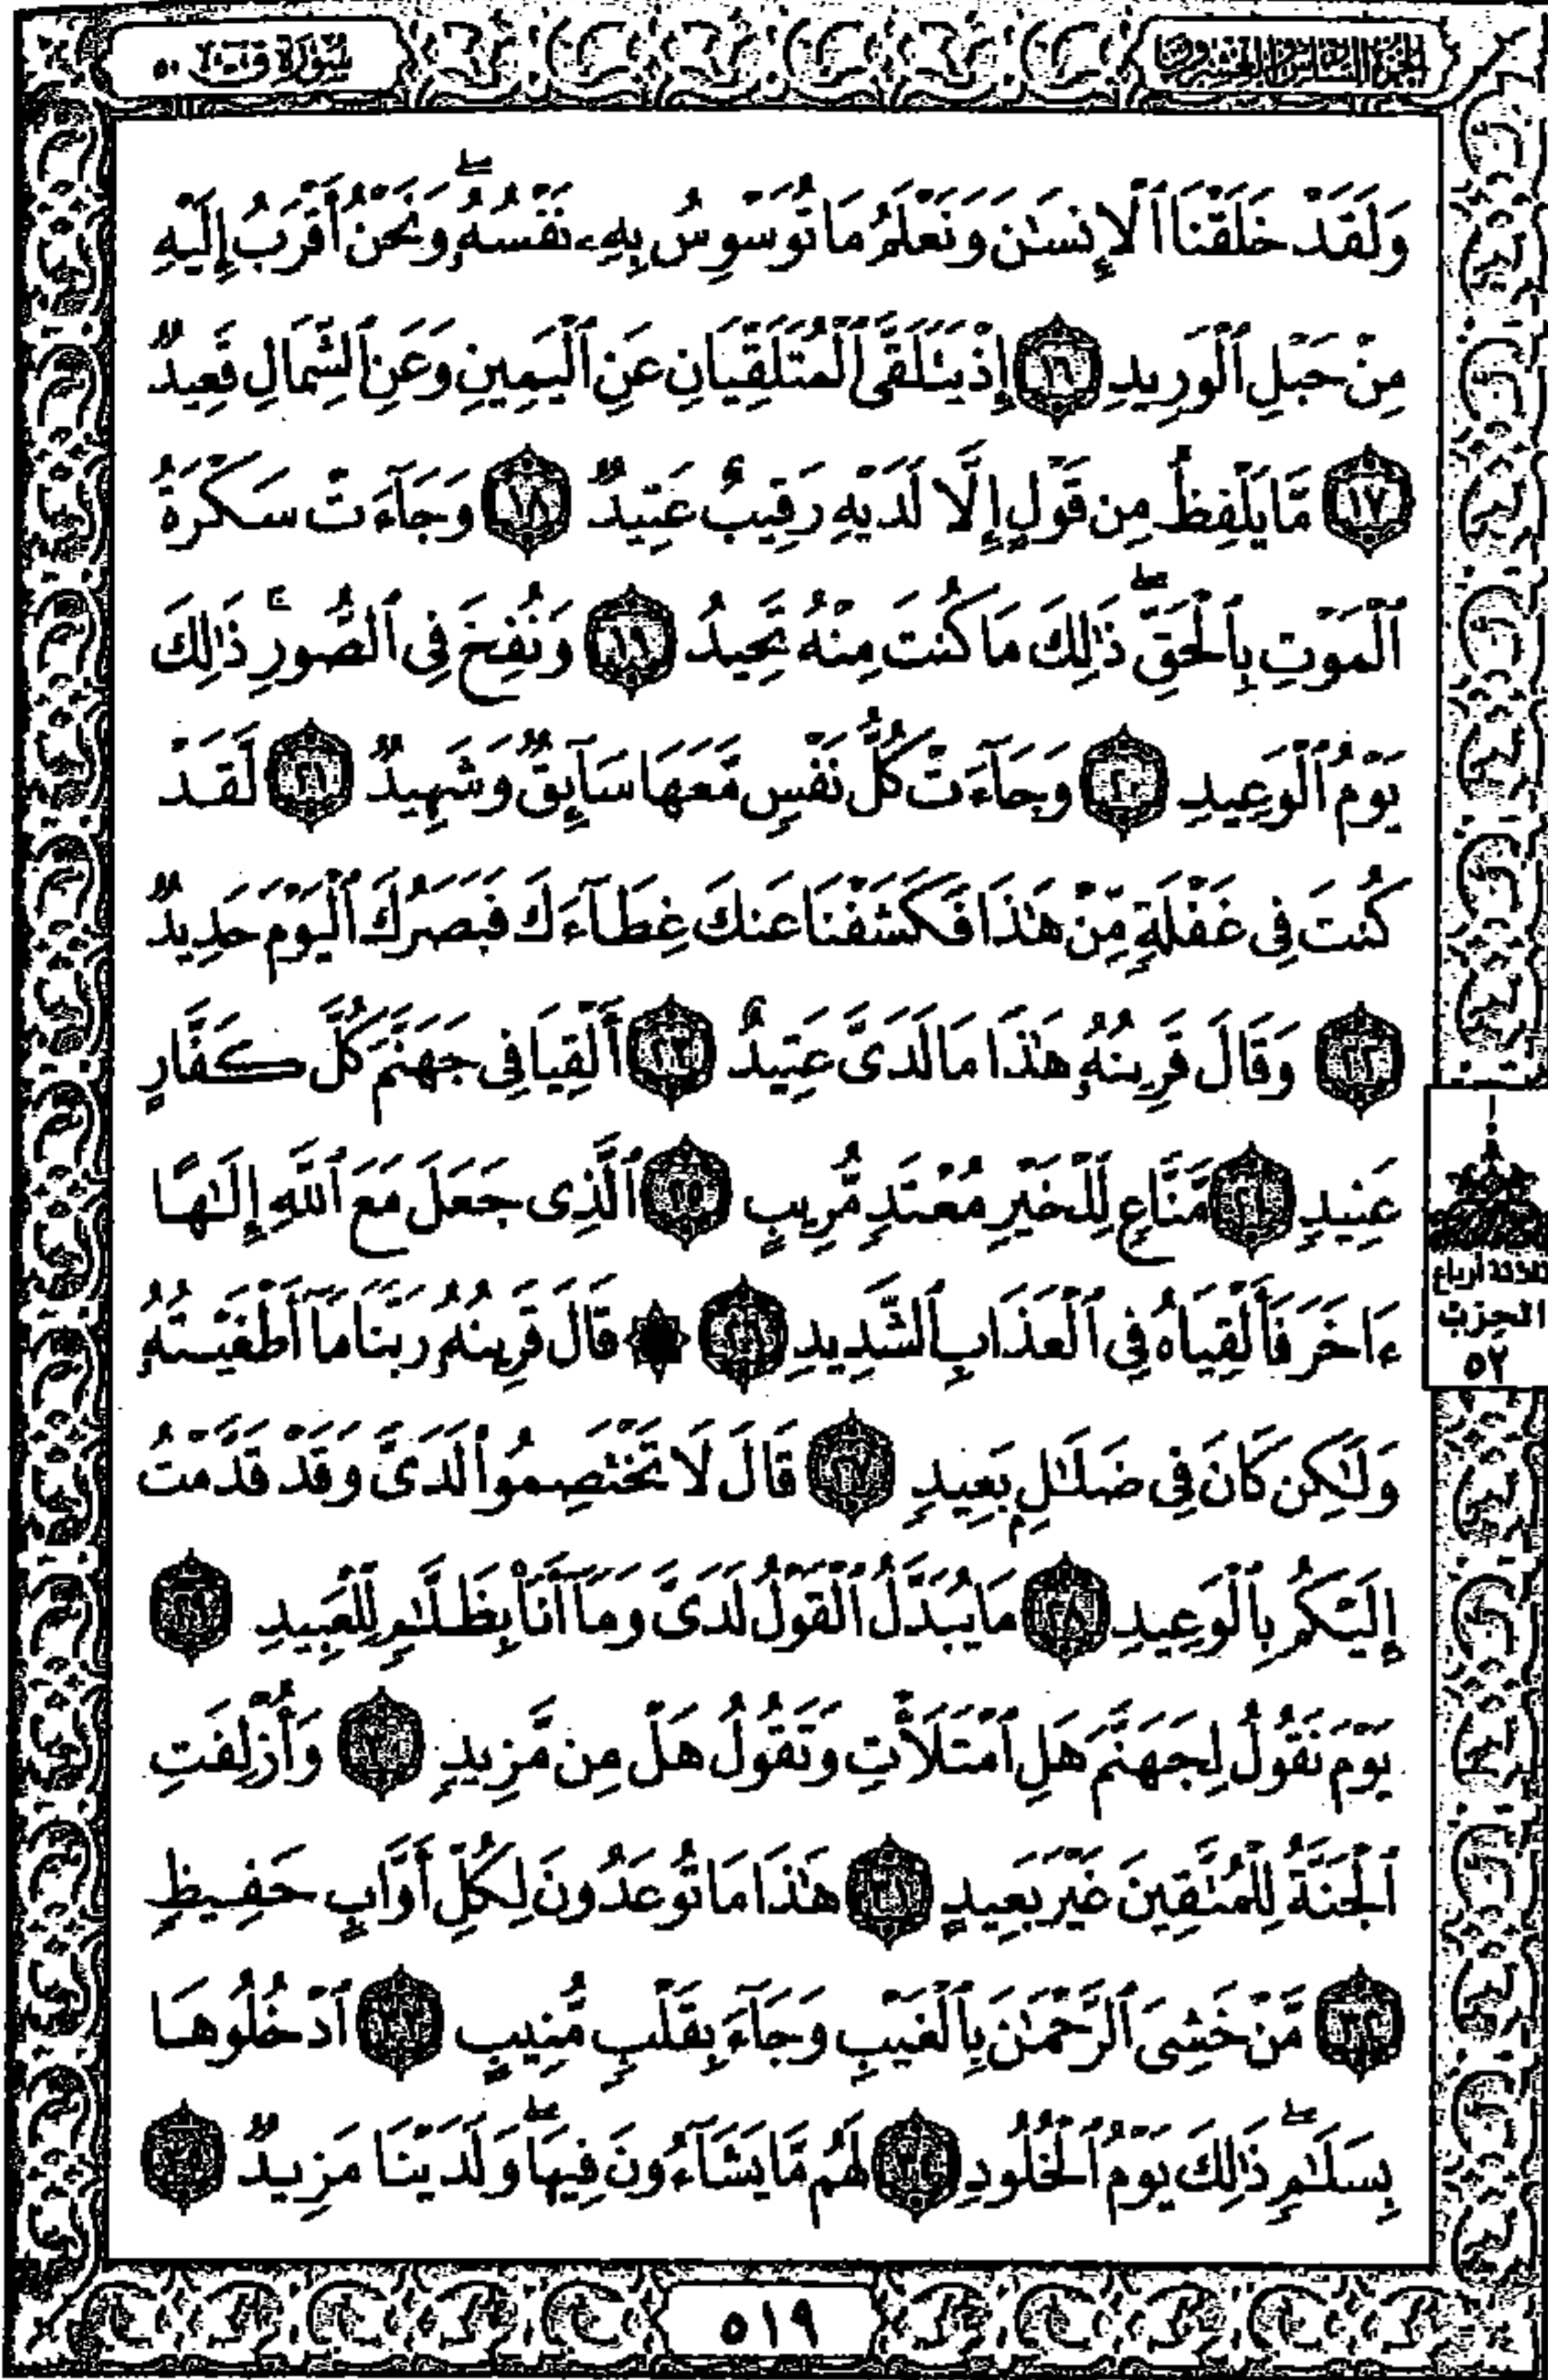 سُورَةُ قٓ ٥٠
الجزء السادس والعشرون
وَلَقَدْ خَلَقْنَا ٱلْإِنسَٰنَ وَنَعْلَمُ مَا تُوَسْوِسُ بِهِۦ نَفْسُهُۥۖ وَنَحْنُ أَقْرَبُ إِلَيْهِ
مِنْ حَبْلِ ٱلْوَرِيدِ ١٦ إِذْ يَتَلَقَّى ٱلْمُتَلَقِّيَانِ عَنِ ٱلْيَمِينِ وَعَنِ ٱلشِّمَالِ قَعِيدٌ
١٧ مَّا يَلْفِظُ مِن قَوْلٍ إِلَّا لَدَيْهِ رَقِيبٌ عَتِيدٌ ١٨ وَجَآءَتْ سَكْرَةُ
ٱلْمَوْتِ بِٱلْحَقِّۖ ذَٰلِكَ مَا كُنتَ مِنْهُ تَحِيدُ ١٩ وَنُفِخَ فِى ٱلصُّورِۚ ذَٰلِكَ
يَوْمُ ٱلْوَعِيدِ ٢٠ وَجَآءَتْ كُلُّ نَفْسٍ مَّعَهَا سَآئِقٌ وَشَهِيدٌ ٢١ لَّقَدْ
كُنتَ فِى غَفْلَةٍ مِّنْ هَٰذَا فَكَشَفْنَا عَنكَ غِطَآءَكَ فَبَصَرُكَ ٱلْيَوْمَ حَدِيدٌ
٢٢ وَقَالَ قَرِينُهُۥ هَٰذَا مَا لَدَىَّ عَتِيدٌ ٢٣ أَلْقِيَا فِى جَهَنَّمَ كُلَّ كَفَّارٍ
عَنِيدٍ ٢٤ مَّنَّاعٍ لِّلْخَيْرِ مُعْتَدٍ مُّرِيبٍ ٢٥ ٱلَّذِى جَعَلَ مَعَ ٱللَّهِ إِلَٰهًا
ءَاخَرَ فَأَلْقِيَاهُ فِى ٱلْعَذَابِ ٱلشَّدِيدِ ٢٦ ۞ قَالَ قَرِينُهُۥ رَبَّنَا مَآ أَطْغَيْتُهُۥ
وَلَٰكِن كَانَ فِى ضَلَٰلٍۭ بَعِيدٍ ٢٧ قَالَ لَا تَخْتَصِمُوا۟ لَدَىَّ وَقَدْ قَدَّمْتُ
إِلَيْكُم بِٱلْوَعِيدِ ٢٨ مَا يُبَدَّلُ ٱلْقَوْلُ لَدَىَّ وَمَآ أَنَا۠ بِظَلَّٰمٍ لِّلْعَبِيدِ ٢٩
يَوْمَ نَقُولُ لِجَهَنَّمَ هَلِ ٱمْتَلَأْتِ وَتَقُولُ هَلْ مِن مَّزِيدٍ ٣٠ وَأُزْلِفَتِ
ٱلْجَنَّةُ لِلْمُتَّقِينَ غَيْرَ بَعِيدٍ ٣١ هَٰذَا مَا تُوعَدُونَ لِكُلِّ أَوَّابٍ حَفِيظٍ
٣٢ مَّنْ خَشِىَ ٱلرَّحْمَٰنَ بِٱلْغَيْبِ وَجَآءَ بِقَلْبٍ مُّنِيبٍ ٣٣ ٱدْخُلُوهَا
بِسَلَٰمٍۖ ذَٰلِكَ يَوْمُ ٱلْخُلُودِ ٣٤ لَهُم مَّا يَشَآءُونَ فِيهَاۖ وَلَدَيْنَا مَزِيدٌ ٣٥
ثلاثة أرباع
الحزب
٥٢
٥١٩